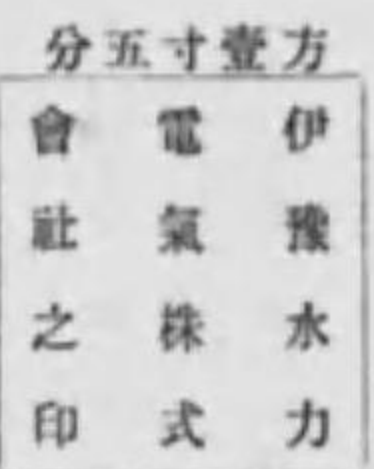 方壹寸五分
伊豫水力
電氣株式
會社之印